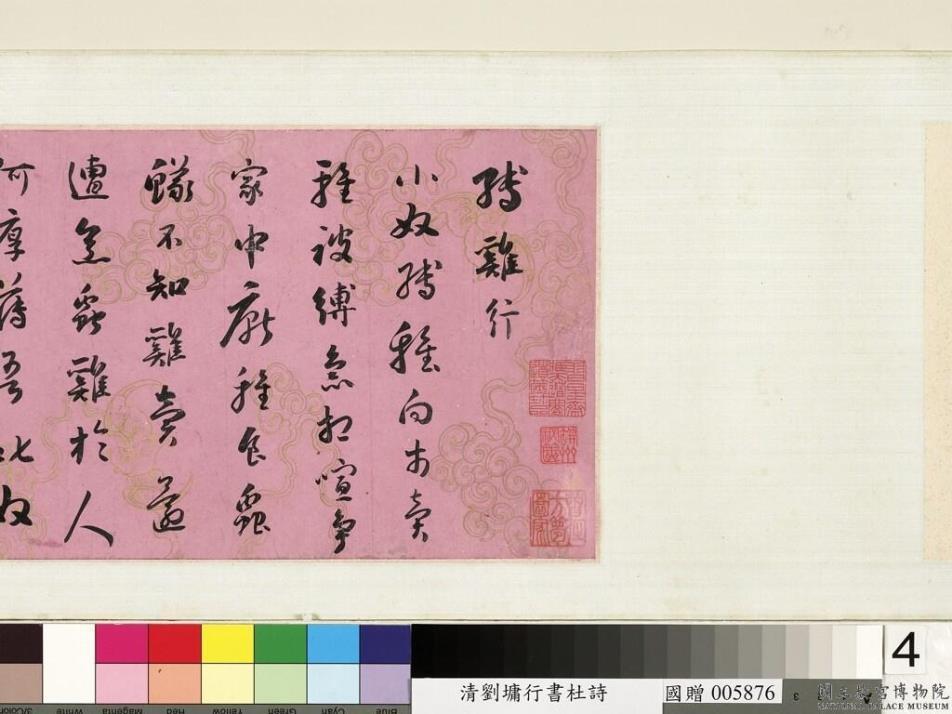 縛雞行
小奴縛雞向市賣
雞被縛急相喧爭
家中厭雞食蟲
蟻不知雞賣還
遭烹蟲雞於人
何厚薄吾叱奴
3/Color White Magenta Red Yellow Green Cyan Blue
清劉墉行書杜詩
國贈 005876
4
國立故宮博物院
NATIONAL PALACE MUSEUM